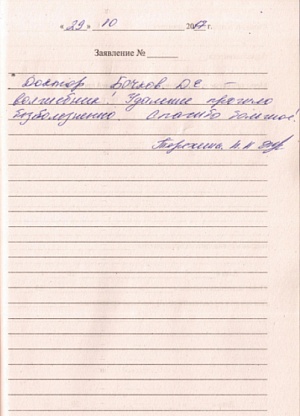 «29» 10 2017 г.
Заявление №
Доктор Бочков Д.С. –
волшебник! Удаление прошло
безболезненно. Спасибо большое!
Торяхина. Н.Н